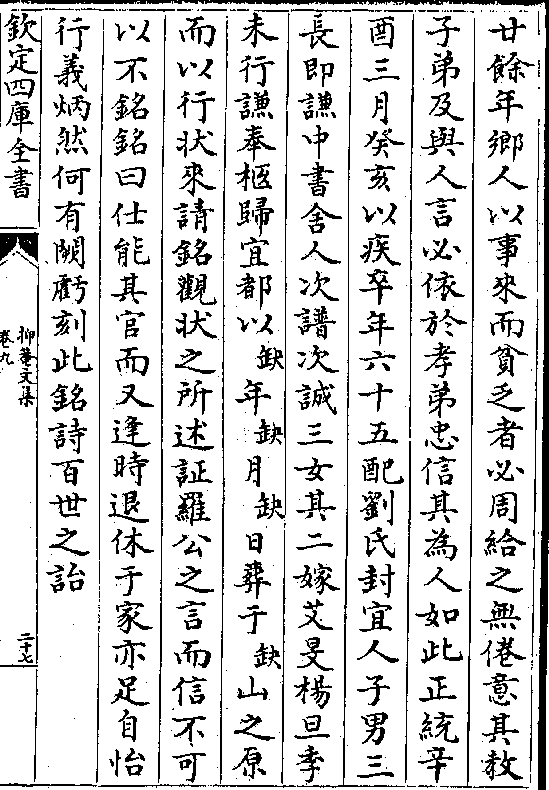 廿餘年鄉人以事來而貧乏者必周給之無倦意其教
子弟及與人言必依於孝弟忠信其為人如此正統辛
酉三月癸亥以疾卒年六十五配劉氏封宜人子男三
長即謙中書舍人次譜次誠三女其二嫁艾旻楊旦季
未行謙奉柩歸宜都以缺年缺月缺日葬于缺山之原
而以行狀來請銘觀狀之所述証羅公之言而信不可
以不銘銘曰仕能其官而又逢時退休于家亦足自怡
行義炳然何有闕虧刻此銘詩百世之詒
欽定四庫全書
抑菴文集
卷九
二十七